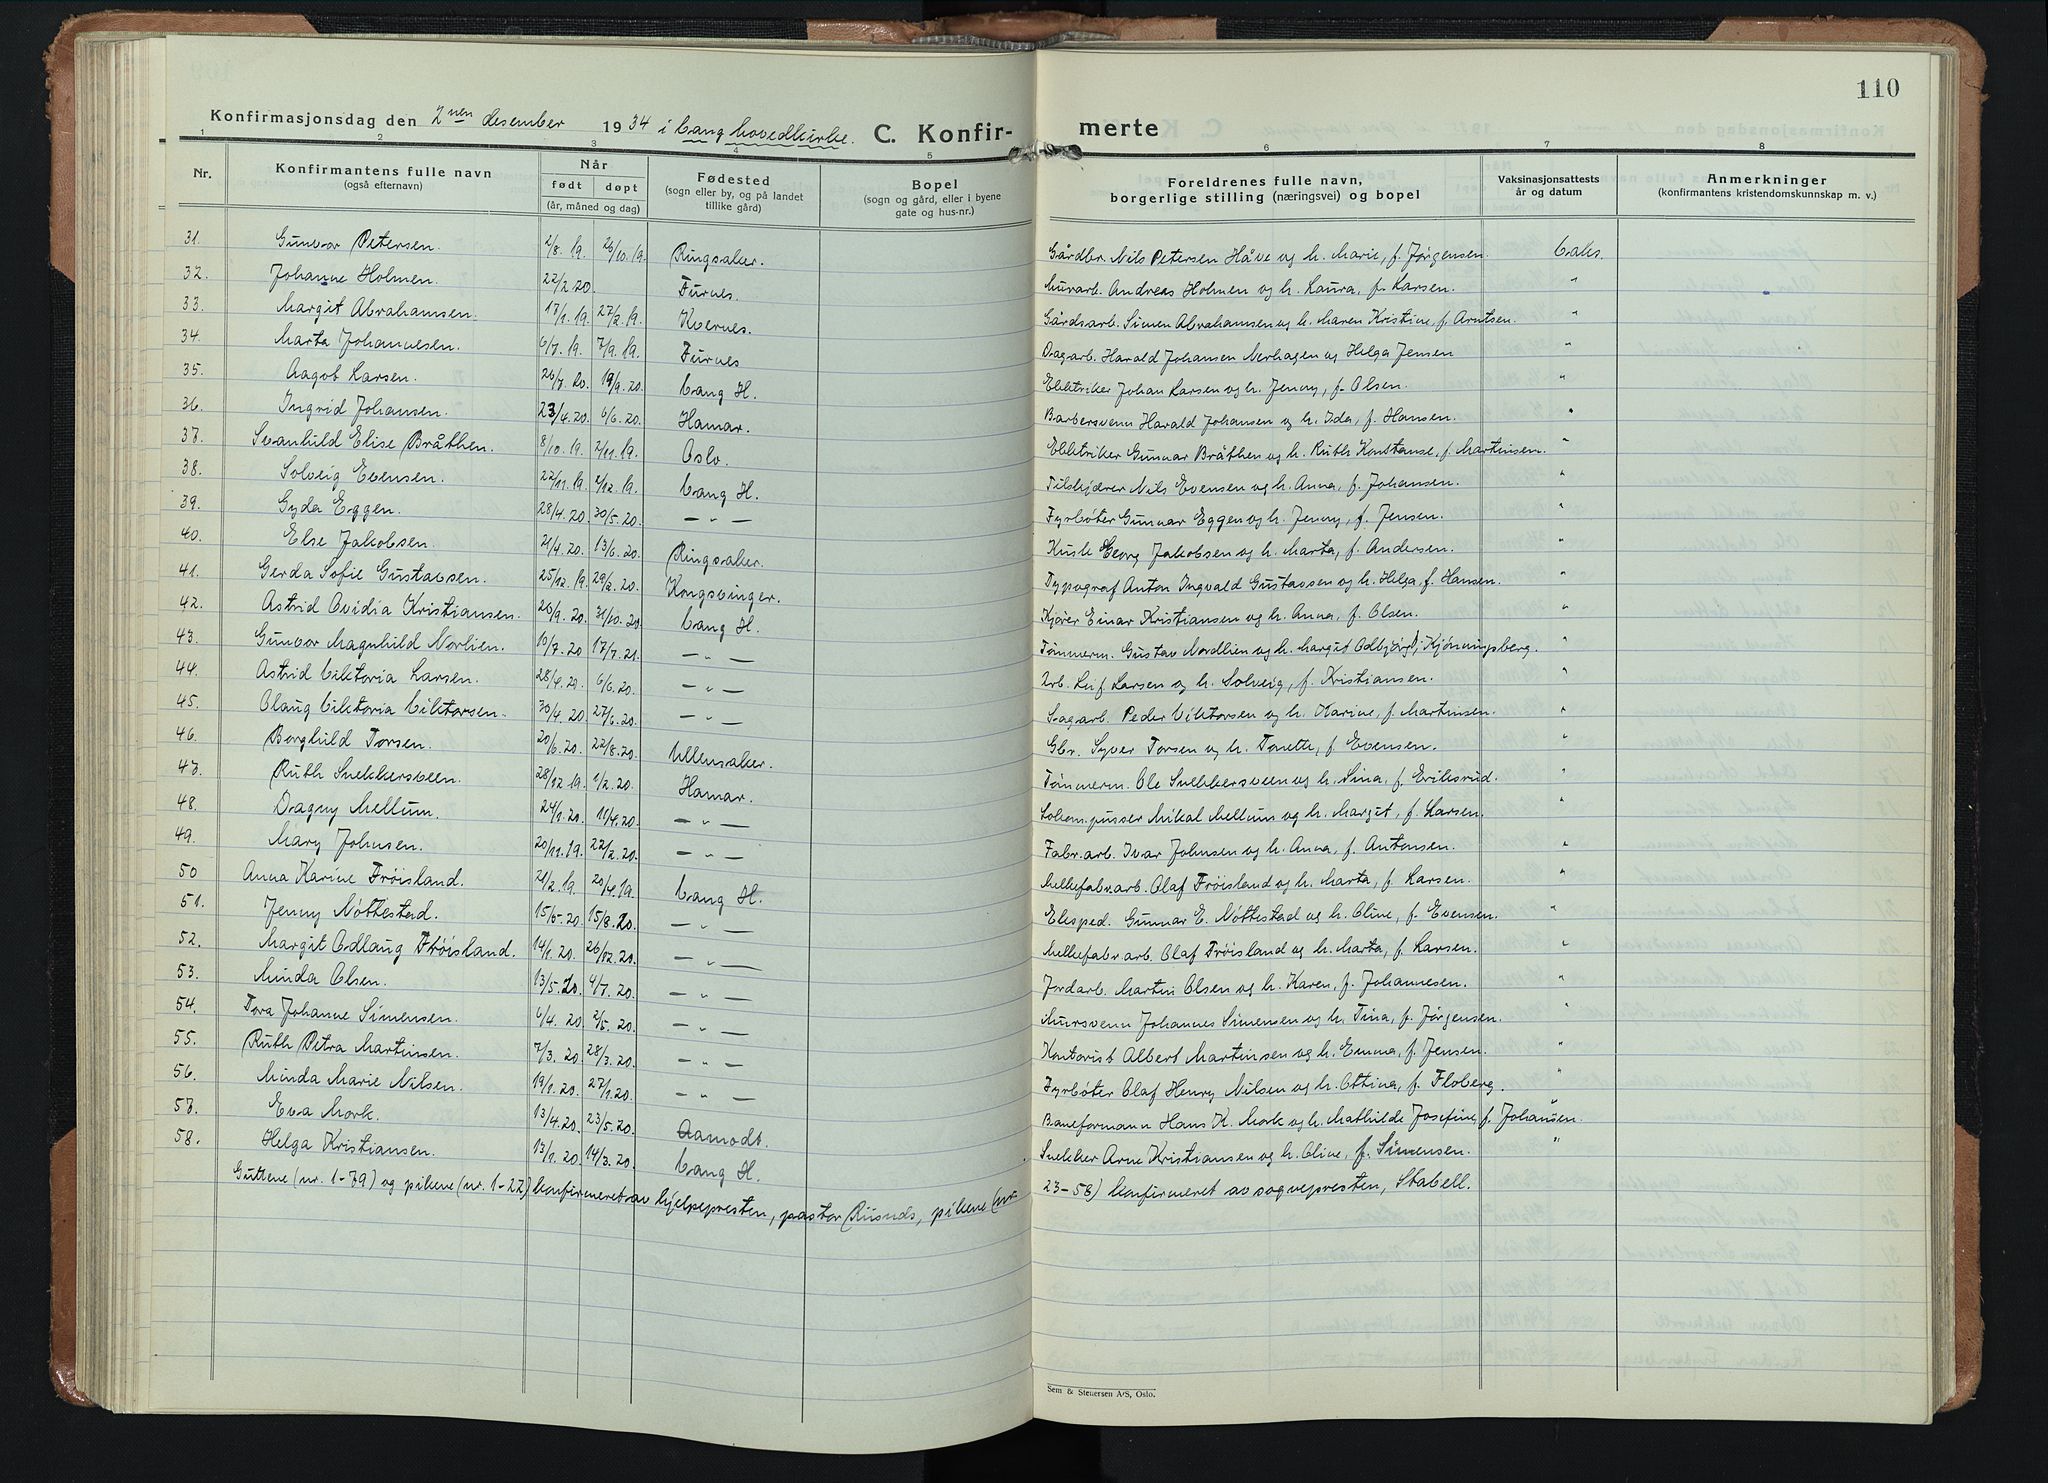 110
Konfirmasjonsdag den 2nen desember 1934 i Vang hovedkirke. C. Konfir- merte
1 2 3 4 5 6 7 8
Nr. Konfirmantens fulle navn (også efternavn) Når født døpt (år, måned og dag) Fødested (sogn eller by, og på landet tillike gård) Bopel (sogn og gård, eller i byene gate og hus-nr.) Foreldrenes fulle navn, borgerlige stilling (næringsvei) og bopel Vaksinasjonsattests år og datum Anmerkninger (konfirmantens kristendomskunnskap m. v.)
31. Gunvor Petersen. 2/8. 19. 26/10. 19. Ringsaker. Gårdbr. Nils Petersen Håve og h. Marie, f. Jørgensen.
32. Johanne Holmen. 22/2. 20. Furnes. Murarb. Andreas Holmen og h. Laura, f. Larsen. "
33. Margit Abrahamsen. 17/1. 19. 27/2. 19. Kvernes. Gårdsarb. Simen Abrahamsen og h. Maren Kristine, f. Arntsen. "
34. Marta Johannesen. 6/7. 19. 7/9. 19. Furnes Dagarb. Harald Johansen Nerhagen og Helga Jensen "
35. Aagot Larsen. 26/7. 20. 19/9. 20. Vang H. Elektriker Johan Larsen og h. Jenny, f. Olsen. "
36. Ingrid Johansen. 23/4. 20. 6/6. 20. Hamar. Barbersvenn Harald Johansen og h. Ida, f. Hansen. "
37. Svanhild Elise Bråthen. 8/10. 19. 2/11. 19. Oslo. Elektriker Gunnar Bråthen og h. Ruth Konstanse, f. Martinsen. "
38. Solveig Evensen. 22/11. 19. 2/12. 19. Vang H. Tilskjærer Nils Evensen og h. Anna, f. Johansen. "
39. Gyda Eggen. 28/4. 20. 30/5. 20. — " — Fyrbøter Gunnar Eggen og h. Jenny, f. Jensen. "
40. Else Jakobsen. 21/4. 20. 13/6. 20. Ringsaker. Kusk Georg Jakobsen og h. Marta, f. Andersen. "
41. Gerda Sofie Gustavsen. 25/12. 19. 29/2. 20. Kongsvinger. Typograf Anton Ingvald Gustavsen og h. Helga, f. Hansen. "
42. Astrid Ovidia Kristiansen. 20/9. 20. 31/10. 20. Vang H. Kjører Einar Kristiansen og h. Anna, f. Olsen. "
43. Gunvor Magnhild Norlien. 10/7. 20 17/7. 21. — " — Tømmerm. Gustav Nordlien og h. Margit Odbjørg, f. Kjønningsberg. "
44. Astrid Viktoria Larsen. 28/4. 20. 6/6. 20. — " — Arb. Leif Larsen og h. Solveig, f. Kristiansen. "
45. Olaug Viktoria Viktorsen. 30/4. 20. 27/6. 20. — " — Sagarb. Peder Viktorsen og h. Karine, f. Martinsen. "
46. Borghild Torsen. 20/6. 20. 22/8. 20. Ullensaker. Gbr. Syver Torsen og h. Torette, f. Evensen. "
47. Ruth Snekkersveen. 28/12. 19. 1/2. 20. Hamar. Tømmerm. Ole Snekkersveen og h. Sina, f. Eriksrud. "
48. Dragny Mellum. 24/1. 20. 11/4. 20. — " — Lokom.pusser Mikal Mellum og h. Margit, f. Larsen. "
49. Mary Johnsen. 20/11. 19. 22/2. 20. — " — Fabr.arb. Ivar Johnsen og h. Anna, f. Antonsen. "
50 Anna Karine Frøisland. 21/2. 19. 20/4. 19. Vang H. Melkefabr.arb. Olaf Frøisland og h. Marta, f. Larsen. "
51. Jenny Nøttestad. 15/5. 20. 15/8. 20. — " — Eksped. Gunnar E. Nøttestad og h. Oline, f. Evensen. "
52. Margit Odlaug Frøisland. 14/1. 20. 26/12. 20. — " — Melkefabr.arb. Olaf Frøisland og h. Marta, f. Larsen. "
53. Minda Olsen. 13/5. 20. 4/7. 20. — " — Jordarb. Martin Olsen og h. Karen, f. Johannesen. "
54. Tora Johanne Simensen. 6/4. 20. 2/5. 20. — " — Mursvenn Johannes Simensen og h. Tina, f. Jørgensen. "
55. Ruth Petra Martinsen. 7/3. 20. 28/3. 20. — " — Kontorist Albert Martinsen og h. Emma, f. Jensen. "
56. Minda Marie Nilsen. 19/1. 20. 27/1. 20. — " — Fyrbøter Olaf Henry Nilsen og h. Ottina, f. Floberg. "
57. Eva Mork. 13/4. 20. 23/5. 20. Aamodt. Baneformann Hans K. Mork og h. Mathilde Josefine, f. Johansen. "
58. Helga Kristiansen. 13/1. 20. 14/3. 20. Vang H. Snekker Arne Kristiansen og h. Oline, f. Simensen. "
Guttene (nr. 1-79) og pikene (nr. 1-22) konfirmeret av hjelpepresten, pastor Riisnæs, pikene (nr. 23-58) konfirmeret av sognepresten, Stabell.
Sem & Stenersen A/S, Oslo.